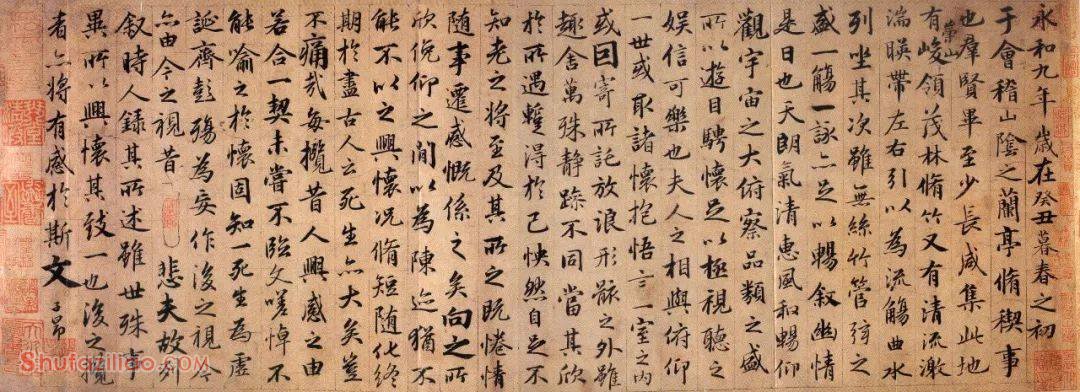 永和九年歲在癸丑暮春之初
于會稽山陰之蘭亭脩禊事
也羣賢畢至少長咸集此地
有崇山峻領茂林脩竹又有清流激
湍暎帶左右引以為流觴曲水
列坐其次雖無絲竹管弦之
盛一觴一詠亦足以暢叙幽情
是日也天朗氣清惠風和暢仰
觀宇宙之大俯察品類之盛
所以遊目騁懷足以極視聽之
娛信可樂也夫人之相與俯仰
一世或取諸懷抱悟言一室之內
或因寄所託放浪形骸之外雖
趣舍萬殊静躁不同當其欣
於所遇蹔得於己怏然自足不
知老之將至及其所之既惓情
隨事遷感慨係之矣向之所
欣俛仰之閒以為陳迹猶不
能不以之興懷況脩短随化終
期於盡古人云死生亦大矣豈
不痛哉每攬昔人興感之由
若合一契未嘗不臨文嗟悼不
能喻之於懷固知一死生為虛
誕齊彭殤為妄作後之視今
亦由今之視昔悲夫故列
叙時人録其所述雖世殊事
異所以興懷其致一也後之攬
者亦將有感於斯文 子昂
Shufaziliao.com